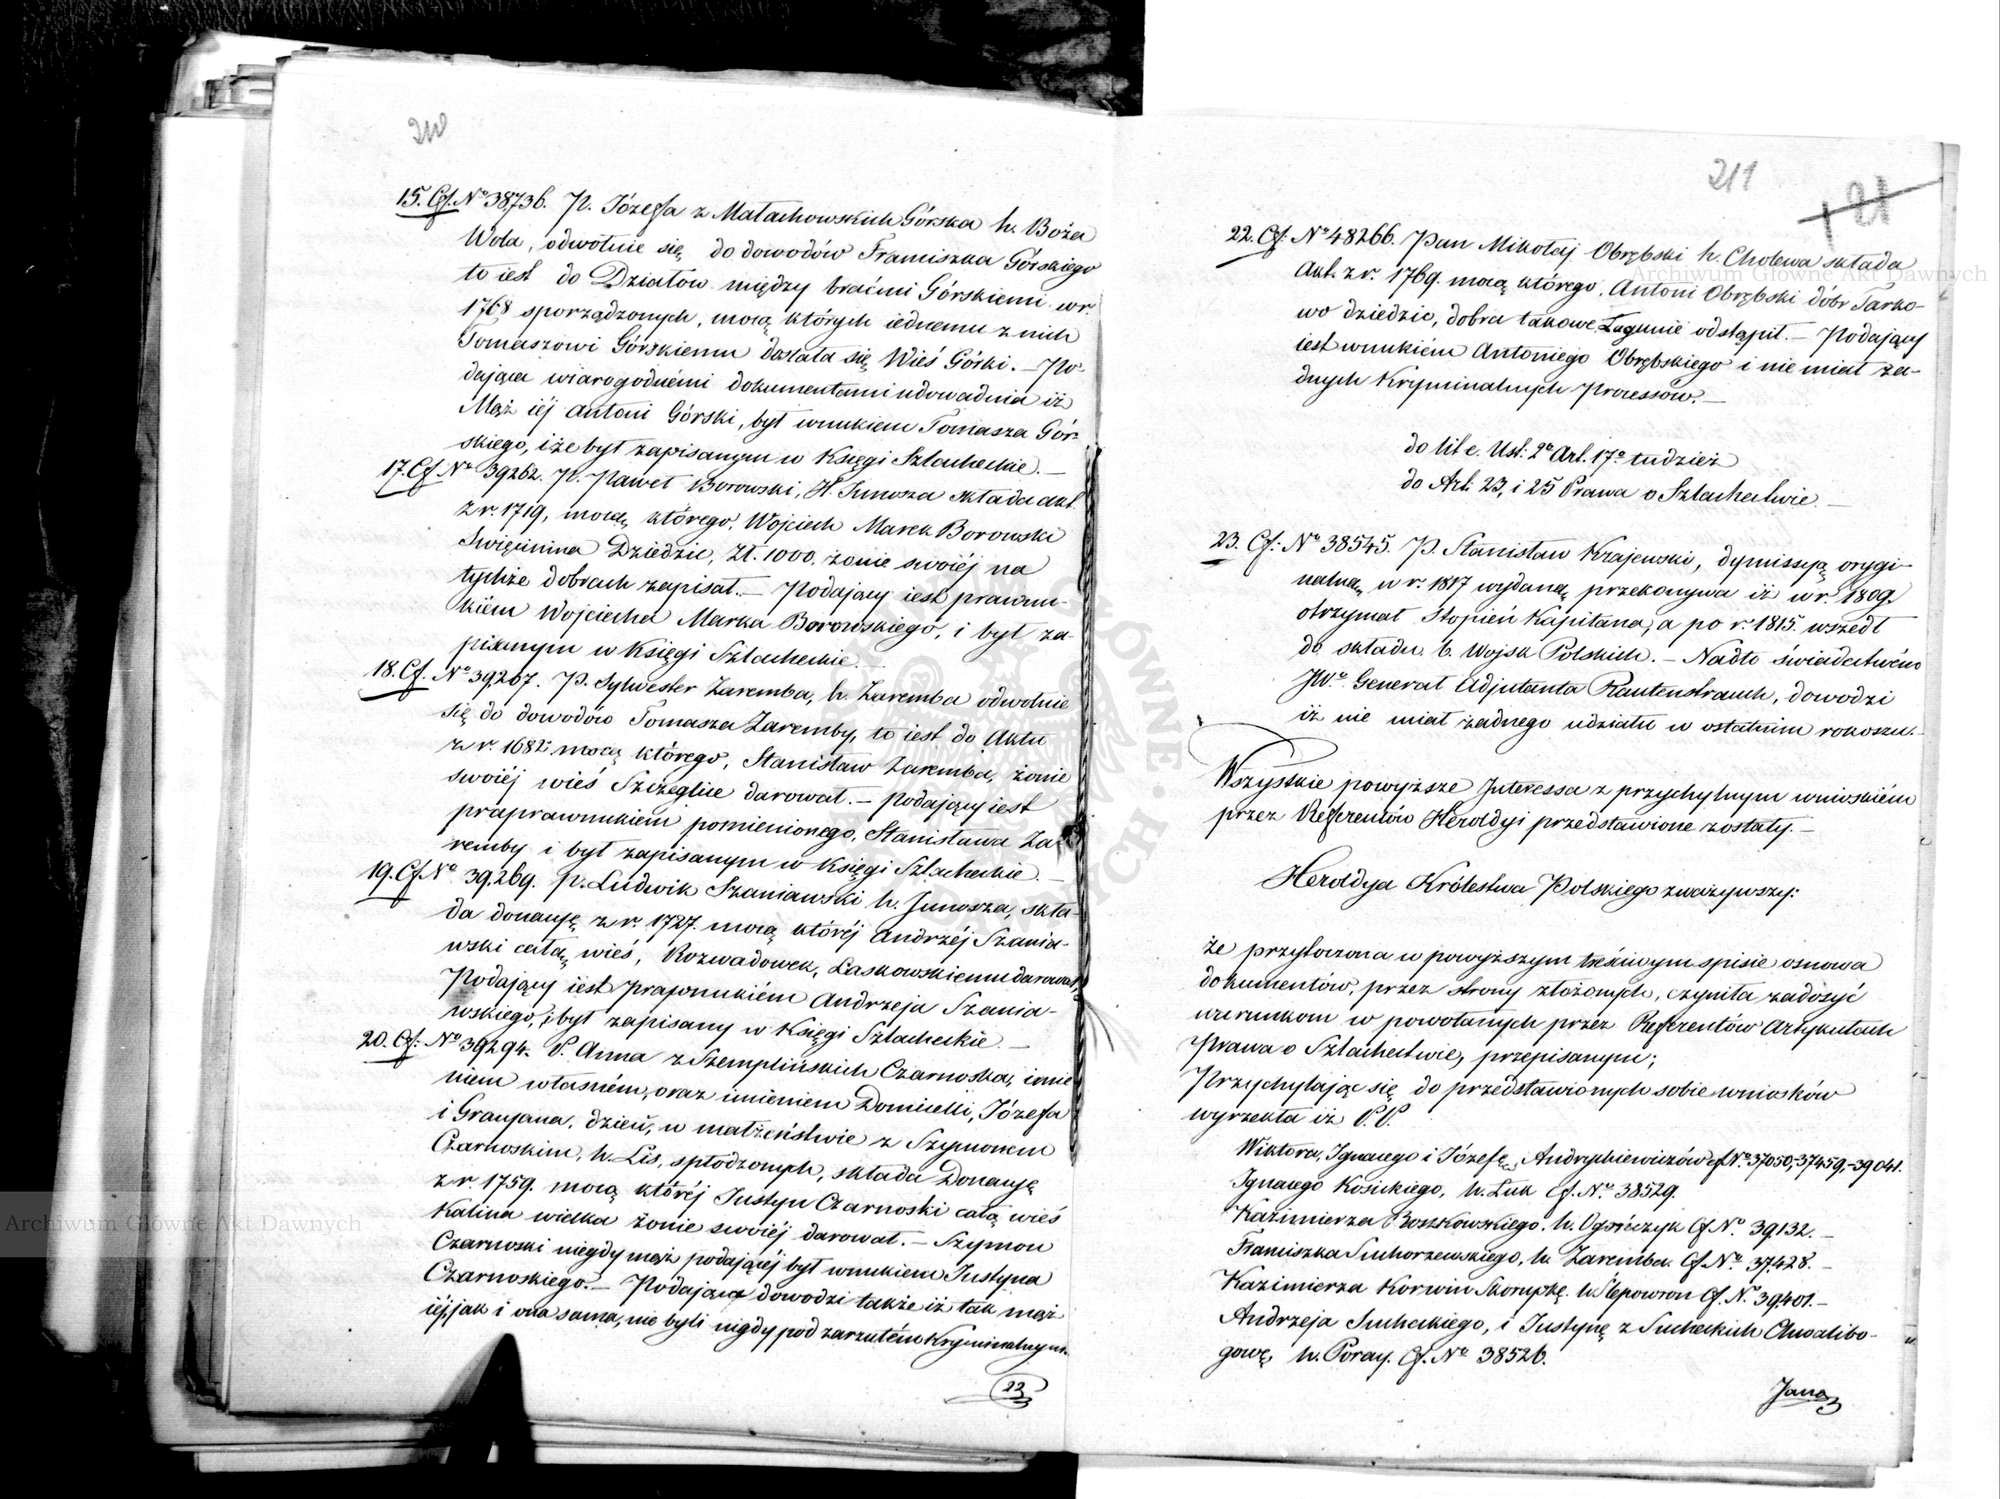 210
15. Cf. Nº 38736. P. Józefa z Małachowskich Górska h. Boża
Wola, odwołnie się do dowodów Franciszka Górskiego
to iest do Działów między braćmi Górskiemi w r.
1768 sporządzonych, mocą których iednemu z nich
Tomaszowi Górskiemu dostała się Wieś Górki. — Po-
daiąca wiarogodnémi dokumentami udowadnia iż
Mąż iéj Antoni Górski, był wnukiem Tomasza Gór-
skiego, i że był zapisanym w Księgi Szlacheckie. —
17. Cf. Nº 39262. P. Paweł Borowski, H. Junosza składa akt
z r. 1719, mocą którego, Wojciech Marek Borowski
Święcinina Dziedzic, Zł. 1000, żonie swoiéj na
tychże dobrach zapisał. — Podający iest prawnu-
kiém Wojciecha Marka Borowskiego, i był za-
pisanym w Księgi Szlacheckie. —
18. Cf. Nº 39267. P. Sylwester Zaremba, h. Zaremba odwołnie
się do dowodów Tomasza Zaremby, to iest do Aktu
z r. 1682 mocą którego, Stanisław Zaremba, żonie
swoiéj wieś Szczeglice darował. — Podający iest
praprawnukiem pomienionego, Stanisława Za-
remby i był zapisanym w Księgi Szlacheckie. —
19. Cf. Nº 39269. P. Ludwik Szaniawski h. Junosza, skła-
da donacyę z r. 1727. mocą któréj Andrzéj Szania-
wski całą wieś, Rozwadowek, Laskowskiemu darował,
Podający iest praponukiém Andrzeja Szania-
wskiego, i był zapisany w Księgi Szlacheckie. —
20. Cf. Nº 39294. P. Anna z Szemplińskich Czarnoska, imie
niem własném, oraz imieniem Domicelli, Józefa
i Gracyana, dzieci, w małżeństwie z Szymonem
Czarnoskim, h. Lis, spłodzonych, składa Donacyę
z r. 1759. mocą któréj Justyn Czarnoski całą wieś
Kalina wielka żonie swoiéj darował. — Szymon
Czarnoski niegdy mąż podającéj był wnukiem Justyna
Czarnoskiego. — Podająca dowodzi także iż tak mąż
iéj jak i ona sama, nie byli nigdy pod zarzutém Kryminalnym.
22
211
21
22. Cf: Nº 48266. Pan Mikołaj Obrębski h. Cholewa składa
Akt. z r. 1769. mocą którego, Antoni Obrębski dóbr Tarko-
wo dziedzic, dobra takowe Łagunie odstąpił. — Podający
iest wnukiém Antoniego Obrębskiego i nie miał ża-
dnych Kryminalnych Processów. —
do lit c. Ust: 2º Art. 17º tudzież
do Art: 23, i 25 Prawa o Szlachectwie. —
23. Cf: Nº 38545. P. Stanisław Krajewski, dymissyą orygi-
nalną, w r. 1817 wydaną, przekonywa iż w r. 1809.
otrzymał Stopień Kapitana, a po r. 1815. wszedł
do składu b. Wojsk Polskich. — Nadto świadectwém
JWº Generał Adjutanta Rautenstrauch, dowodzi
iż nie miał żadnego udziału w ostatnim rokoszu. —
Wszystkie powyższe Interessa z przychylnym wnioskiém
przez Referentów Heroldyi przedstawione zostały. —
Heroldya Królestwa Polskiego zważywszy:
że przytoczona w powyższym treściwym spisie osnowa
dokumentów, przez strony złożonych, czyniła zadosyć
warunkom w powołanych przez Referentów Artykułach
Prawa o Szlachectwie, przepisanym;
Przychylając się do przedstawionych sobie wniosków
wyrzekła iż P. P.
Wiktora, Ignacego i Józefę, Andrychiewiczów cf Nº 37050,-37459,-39041.
Ignacego Kosickiego, h. Łuk Cf. Nº 38529.
Kazimierza Boszkowskiego. h. Ogończyk Cf Nº 39132. —
Franciszka Suchorzewskiego, h. Zaremba. Cf. Nº 37428. —
Kazimierza Korwin Skorupkę h. Slepowron Cf. Nº 39401. —
Andrzeja Sucheckiego, i Justynę z Sucheckich Chwalibo-
gowę, h. Poray. Cf. Nº 38526.
Jana
Archiwum Główne Akt Dawnych
Archiwum Główne Akt Dawnych